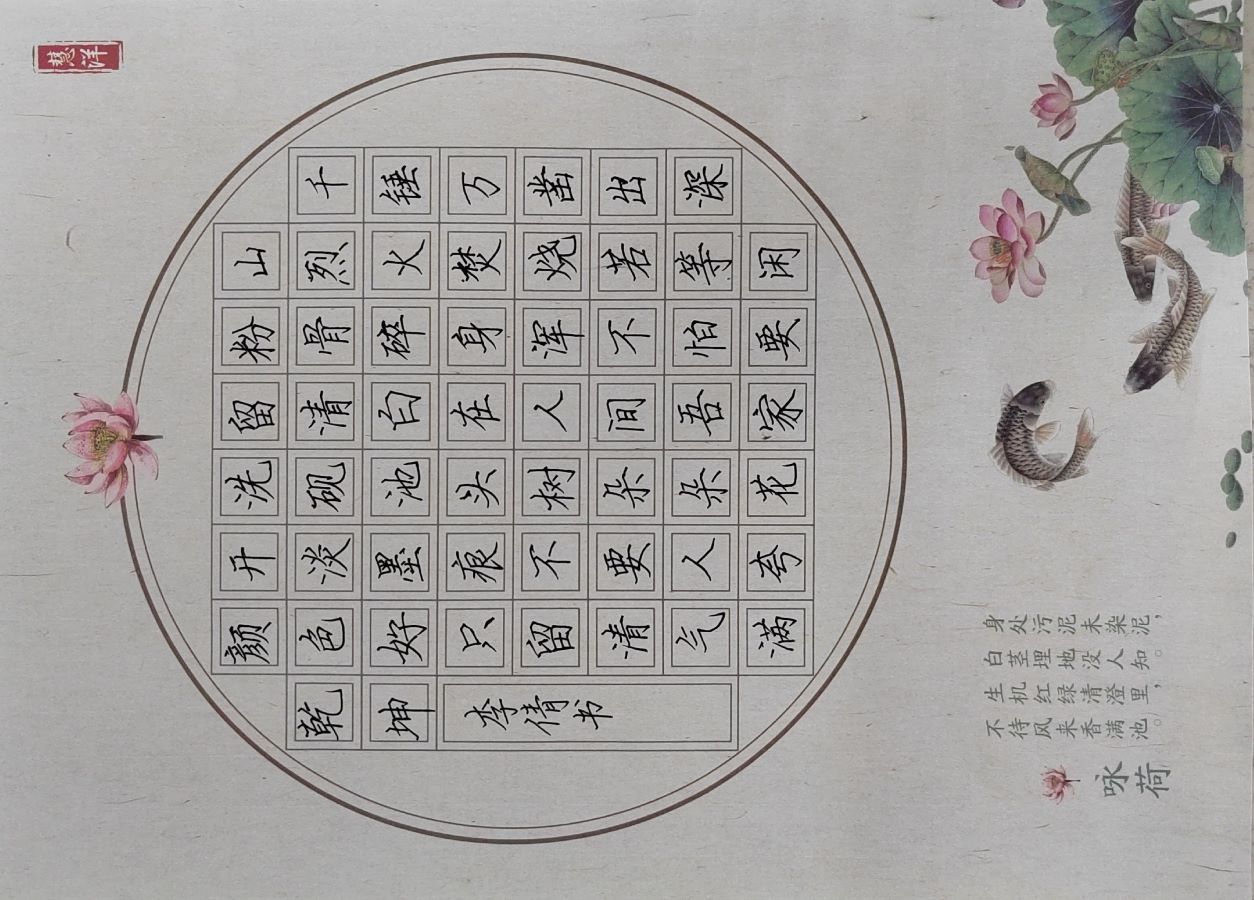 慧洋
千锤万凿出深
山烈火焚烧若等闲
粉骨碎身浑不怕要
留清白在人间吾家
洗砚池头树朵朵花
开淡墨痕不要人夸
颜色好只留清气满
乾坤
李倩书
身处污泥未染泥，
白茎埋地没人知。
生机红绿清澄里，
不待风来香满池。
咏荷